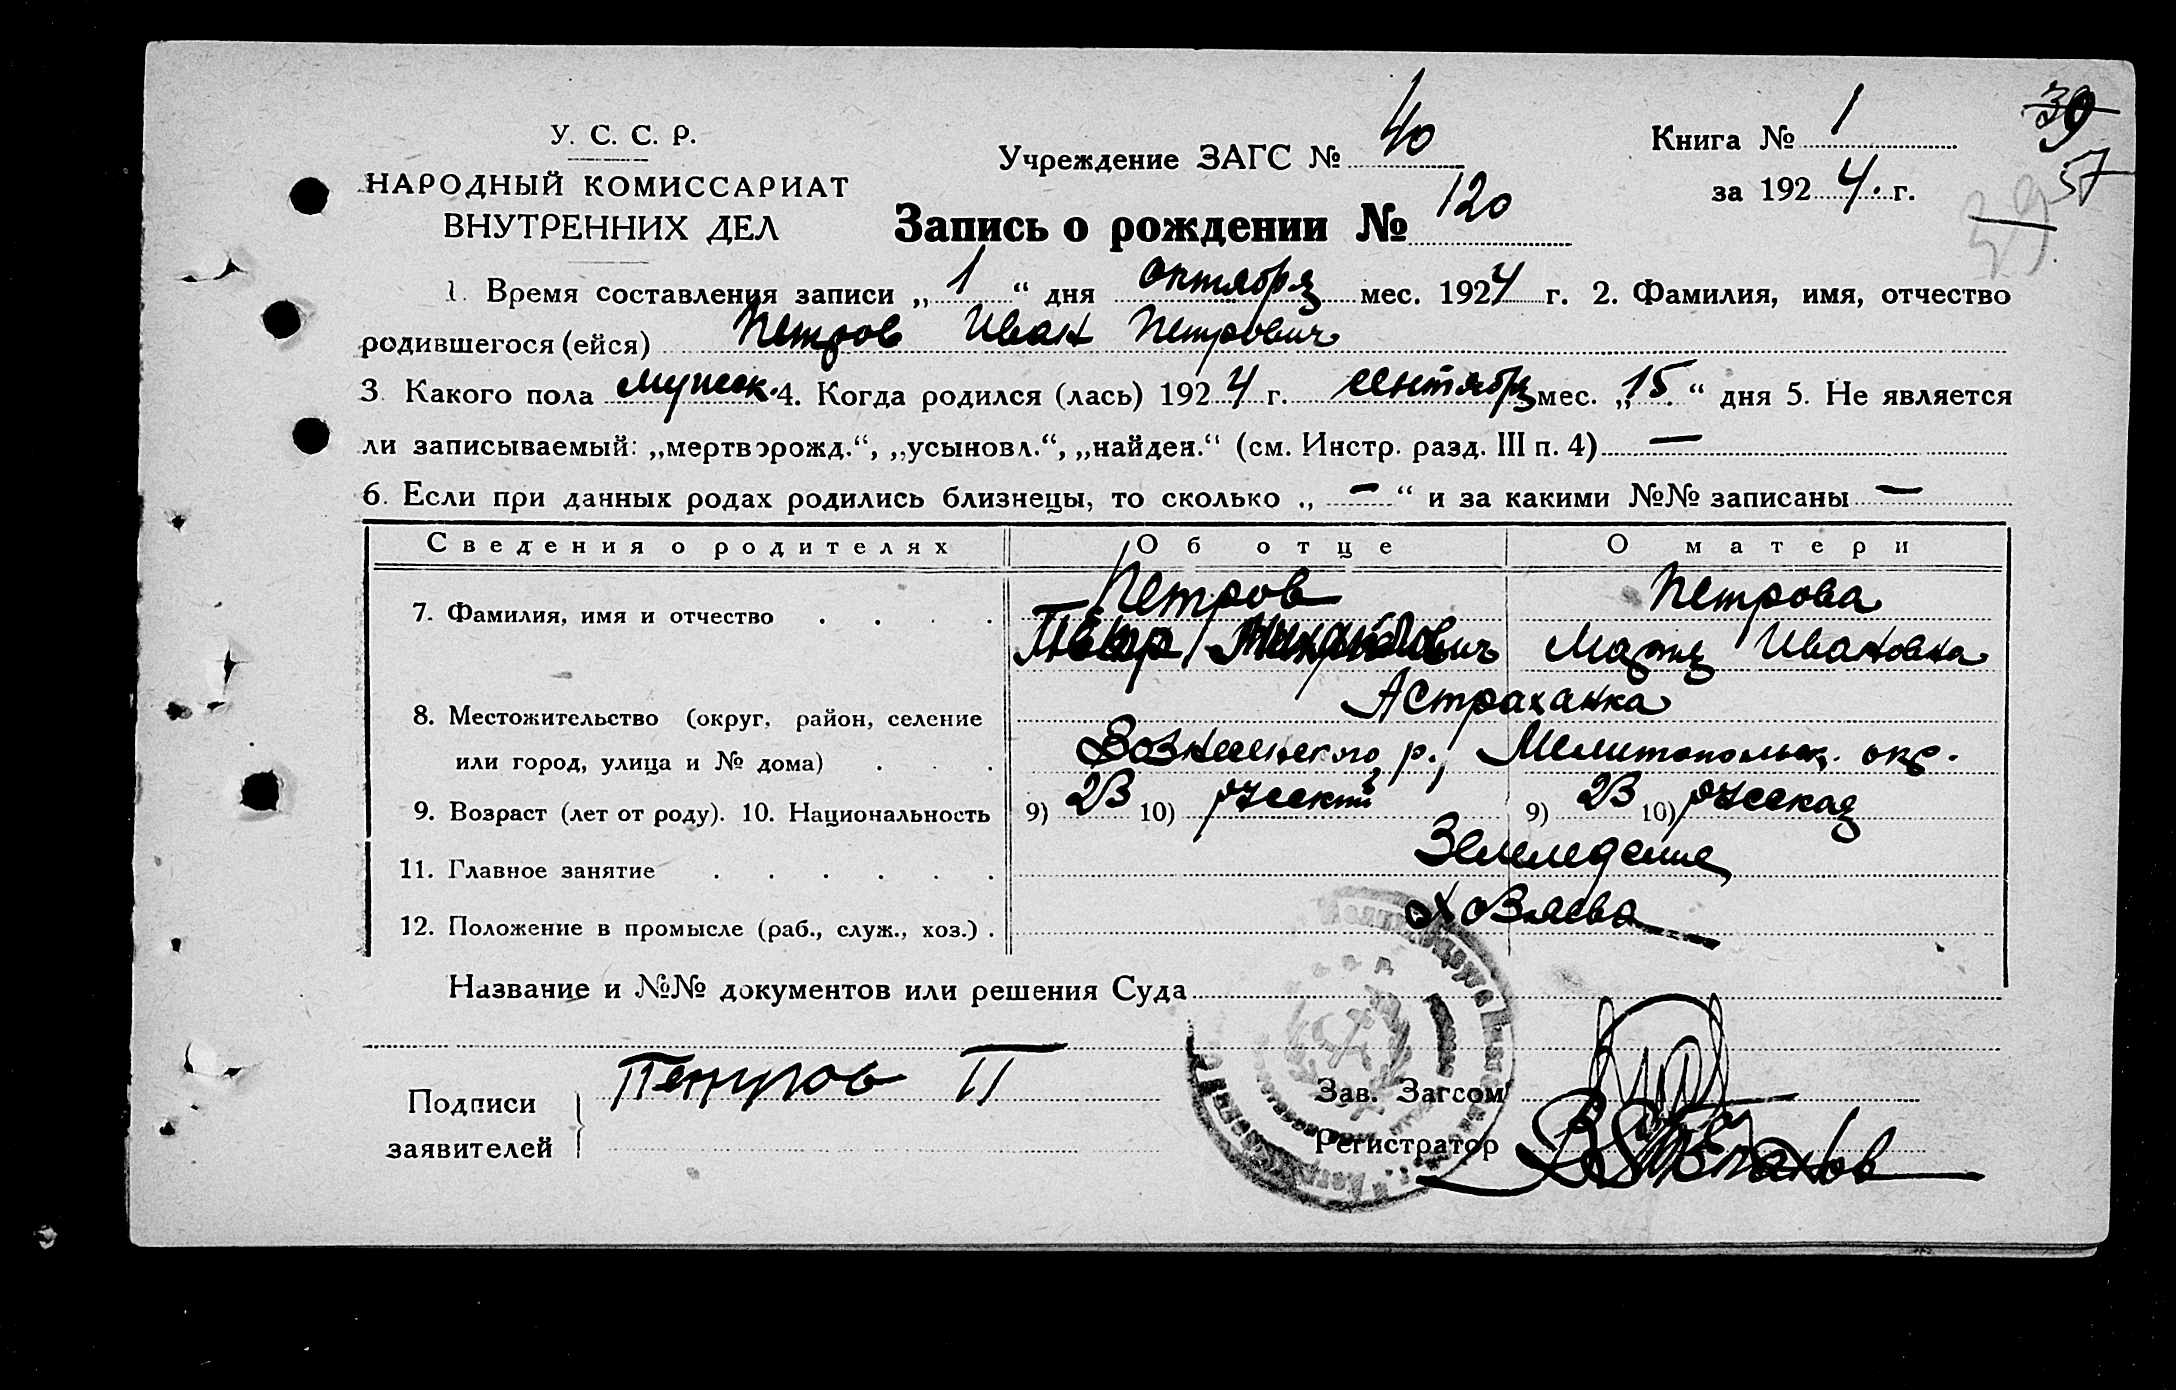 У. С. С. Р.
НАРОДНЫЙ КОМИССАРИАТ
ВНУТРЕННИХ ДЕЛ
Учреждение ЗАГС № 40
Книга № 1
за 1924. г.
39
57
39
Запись о рождении № 120
1. Время составления записи „1“ дня октября мес. 1924 г. 2. Фамилия, имя, отчество
родившегося (ейся) Петров Иван Петрович
3. Какого пола мужск. 4. Когда родился (лась) 1924 г. сентября мес. „15.“ дня 5. Не является
ли записываемый: „мертворожд.“, „усыновл.“, „найден.“ (см. Инстр. разд. III п. 4) —
6. Если при данных родах родились близнецы, то сколько „ — “ и за какими №№ записаны —
Сведения о родителях Об отце О матери
Петров Петрова
7. Фамилия, имя и отчество
Петр Мария Ивановна
Астраханка
8. Местожительство (округ, район, селение
или город, улица и № дома)
Вознесенского р., Мелитопольск. окр.
9. Возраст (лет от роду). 10. Национальность 9) 23 10) русский 9) 23 10) русская
11. Главное занятие Земледелие
12. Положение в промысле (раб., служ., хоз.) хозяева
Название и №№ документов или решения Суда
Подписи
заявителей
Петров П
Зав. Загсом
Регистратор В Степанов